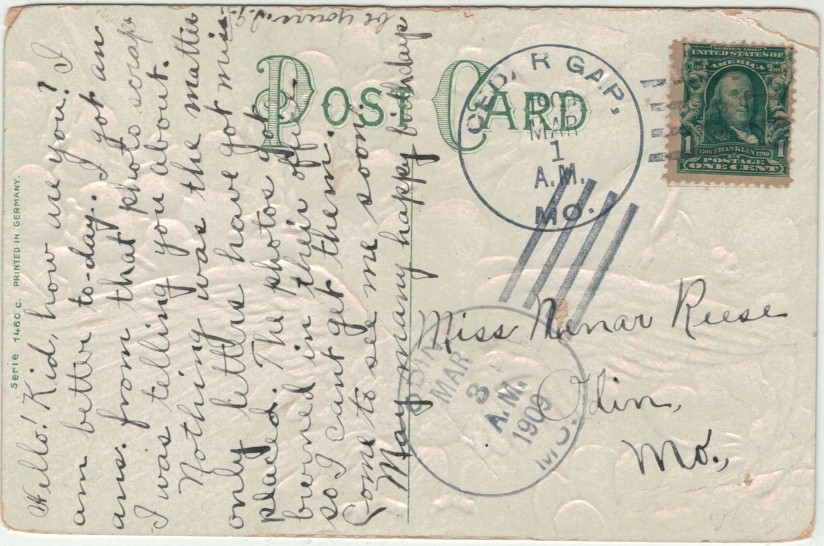 Hello! Kid, how are you? I
am better to-day. I got an
ans. from that photo scrape
I was telling you about.
Nothing was the matter
only letters have got miss-
placed. The photos got
burned in their office.
so I cant get them.
Come to see me soon.
May many happy birthdays
be yours.
POST CARD
CEDAR GAP,
MAR
1
A.M.
MO.
SERIES 1902
UNITED STATES OF
AMERICA
1
1
1706 FRANKLIN 1790
POSTAGE
ONE CENT
MAR
3
A.M.
1909
MO.
Miss Nenar Reese
Odin,
Mo.,
Serie 1460 c. PRINTED IN GERMANY.